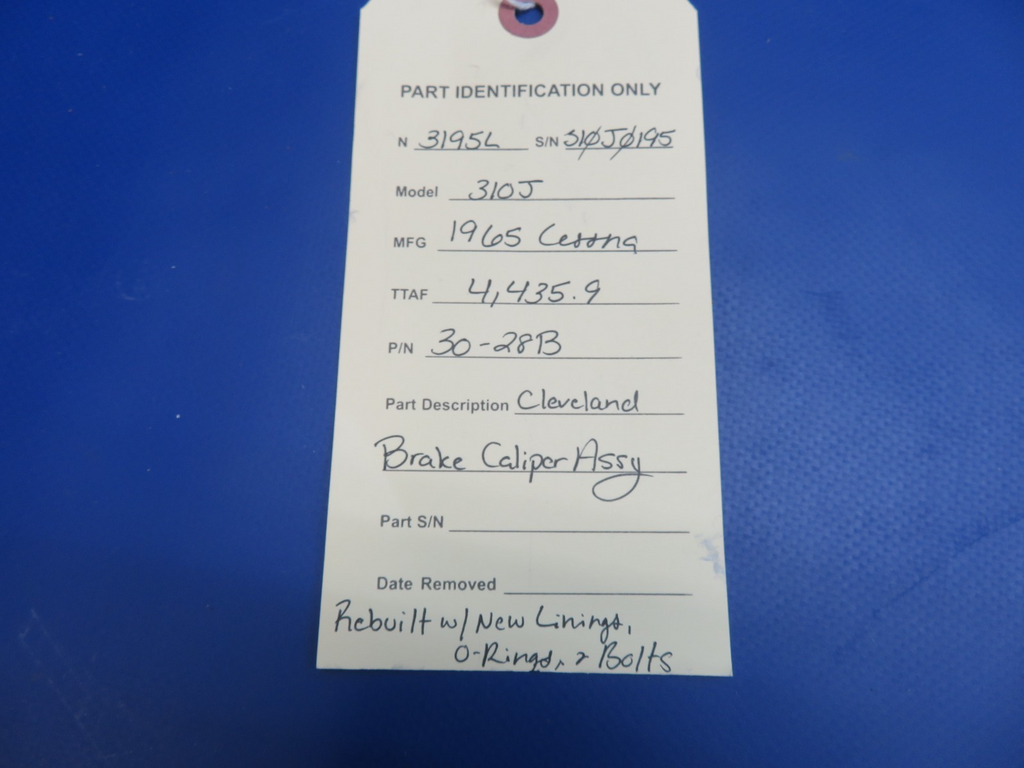 PART IDENTIFICATION ONLY
N 3195L S/N 310J0195
Model 310J
MFG 1965 Cessna
TTAF 4,435.9
P/N 30-28B
Part Description Cleveland
Brake Caliper Assy
Part S/N
Date Removed
Rebuilt w/ New Linings,
O-Rings, & Bolts